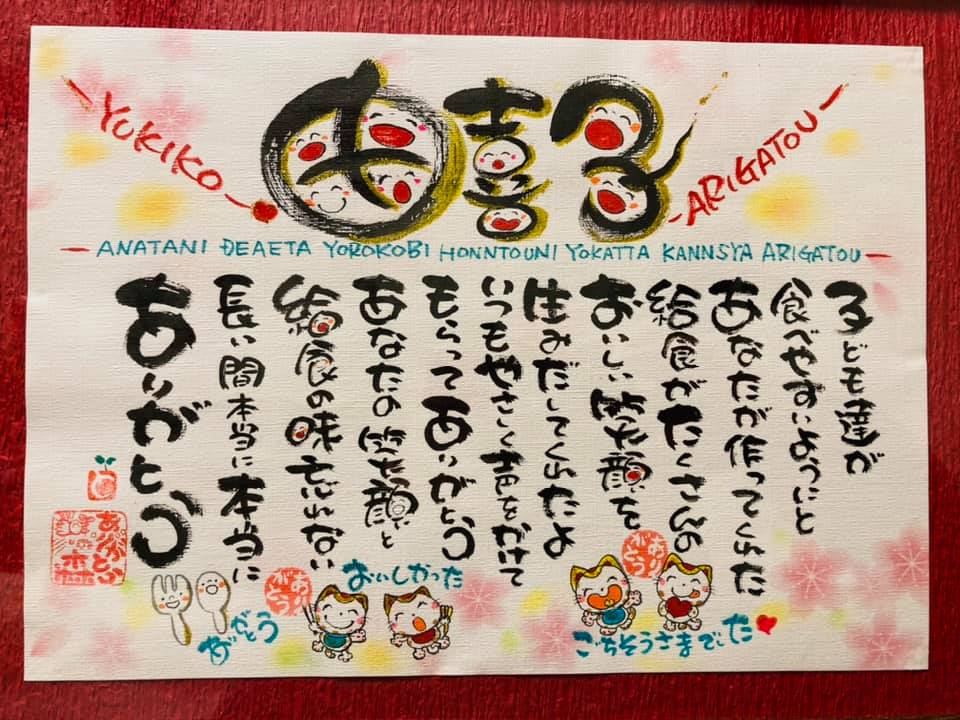 YUKIKO
由喜子
ARIGATOU
ANATANI DEAETA YOROKOBI HONNTOUNI YOKATTA KANNSYA ARIGATOU
子ども達が
食べやすいようにと
あなたが作ってくれた
給食がたくさんの
おいしい笑顔を
生みだしてくれたよ
いつもやさしく声をかけて
もらってありがとう
あなたの笑顔と
給食の味忘れない
長い間本当に本当に
ありがとう
ごちそうさまでした
おいしかった
ありがとう
ありがとう
ありがとう
ありがとう